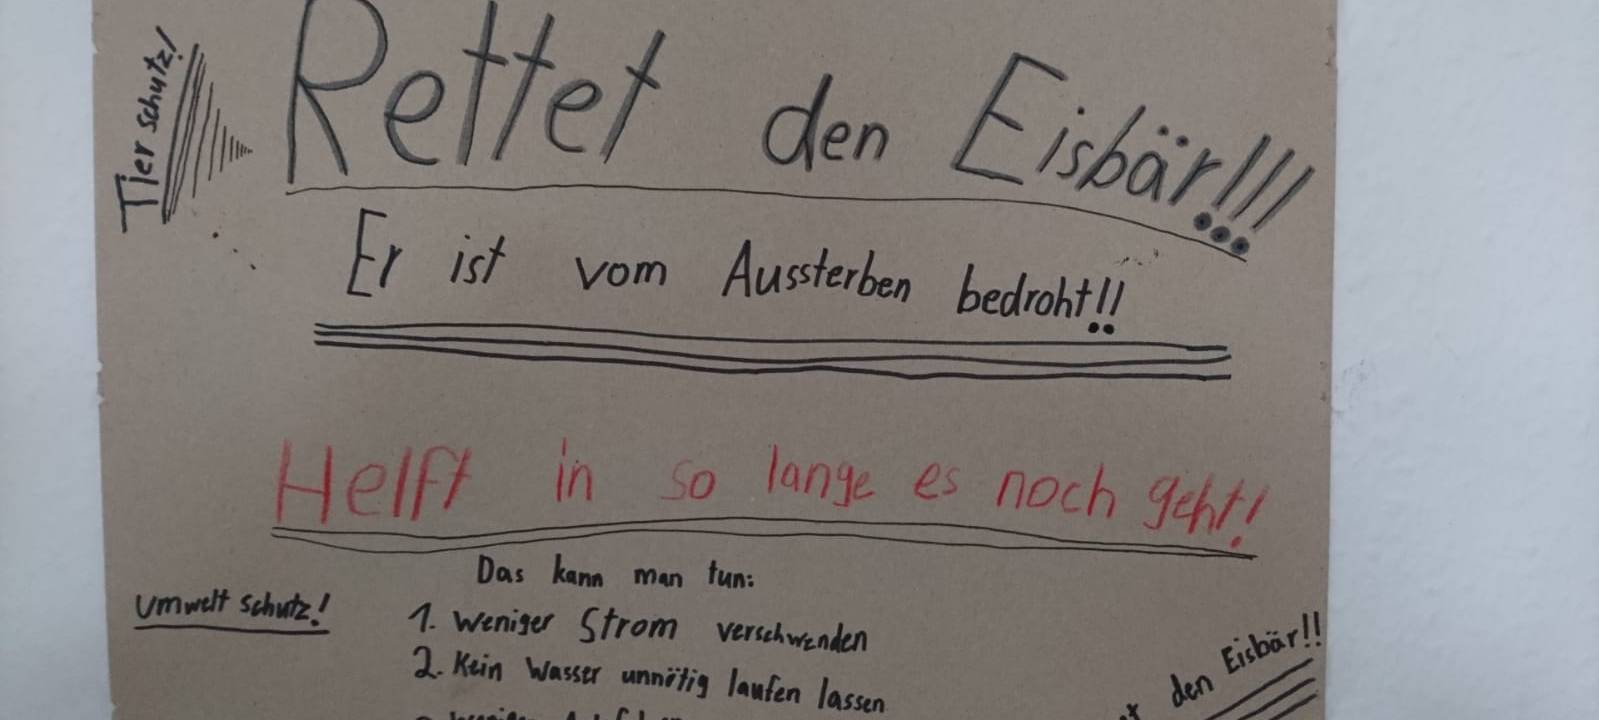 Tier schutz!
Rettet den Eisbär!!!
Er ist vom Aussterben bedroht!!
Helft in so lange es noch geht!
Das kann man tun:
Umwelt schutz!
1. Weniger Strom verschwenden
2. Kein Wasser unnötig laufen lassen
den Eisbär!!